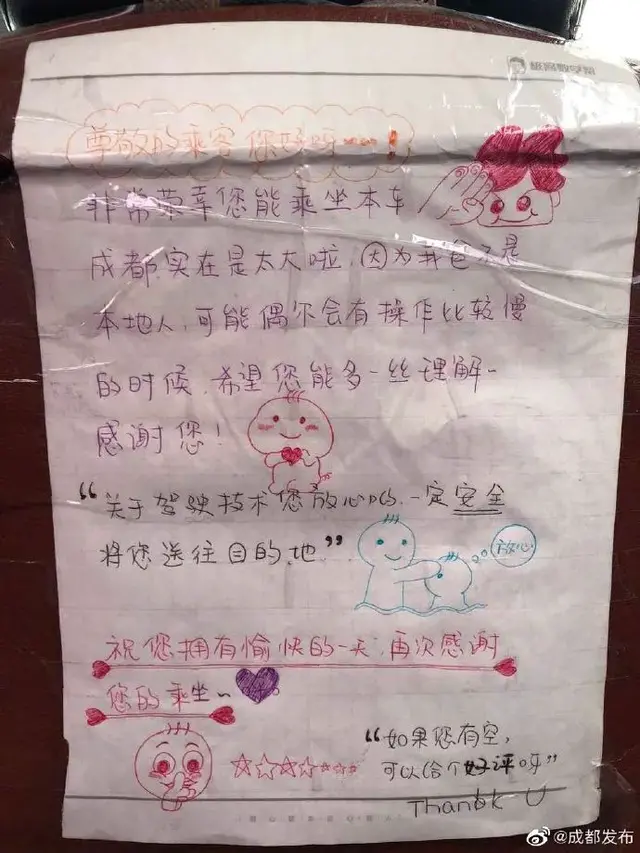 尊敬的乘客 您好呀~~~！
非常荣幸您能乘坐本车
成都实在是太大啦，因为我爸不是
本地人，可能偶尔会有操作比较慢
的时候，希望您能多一丝理解~
感谢您！
“关于驾驶技术您放心哟，一定安全
将您送往目的地”
放心
祝您拥有愉快的一天，再次感谢
您的乘坐~
“如果您有空，
可以给个好评呀”
Thank U
@成都发布